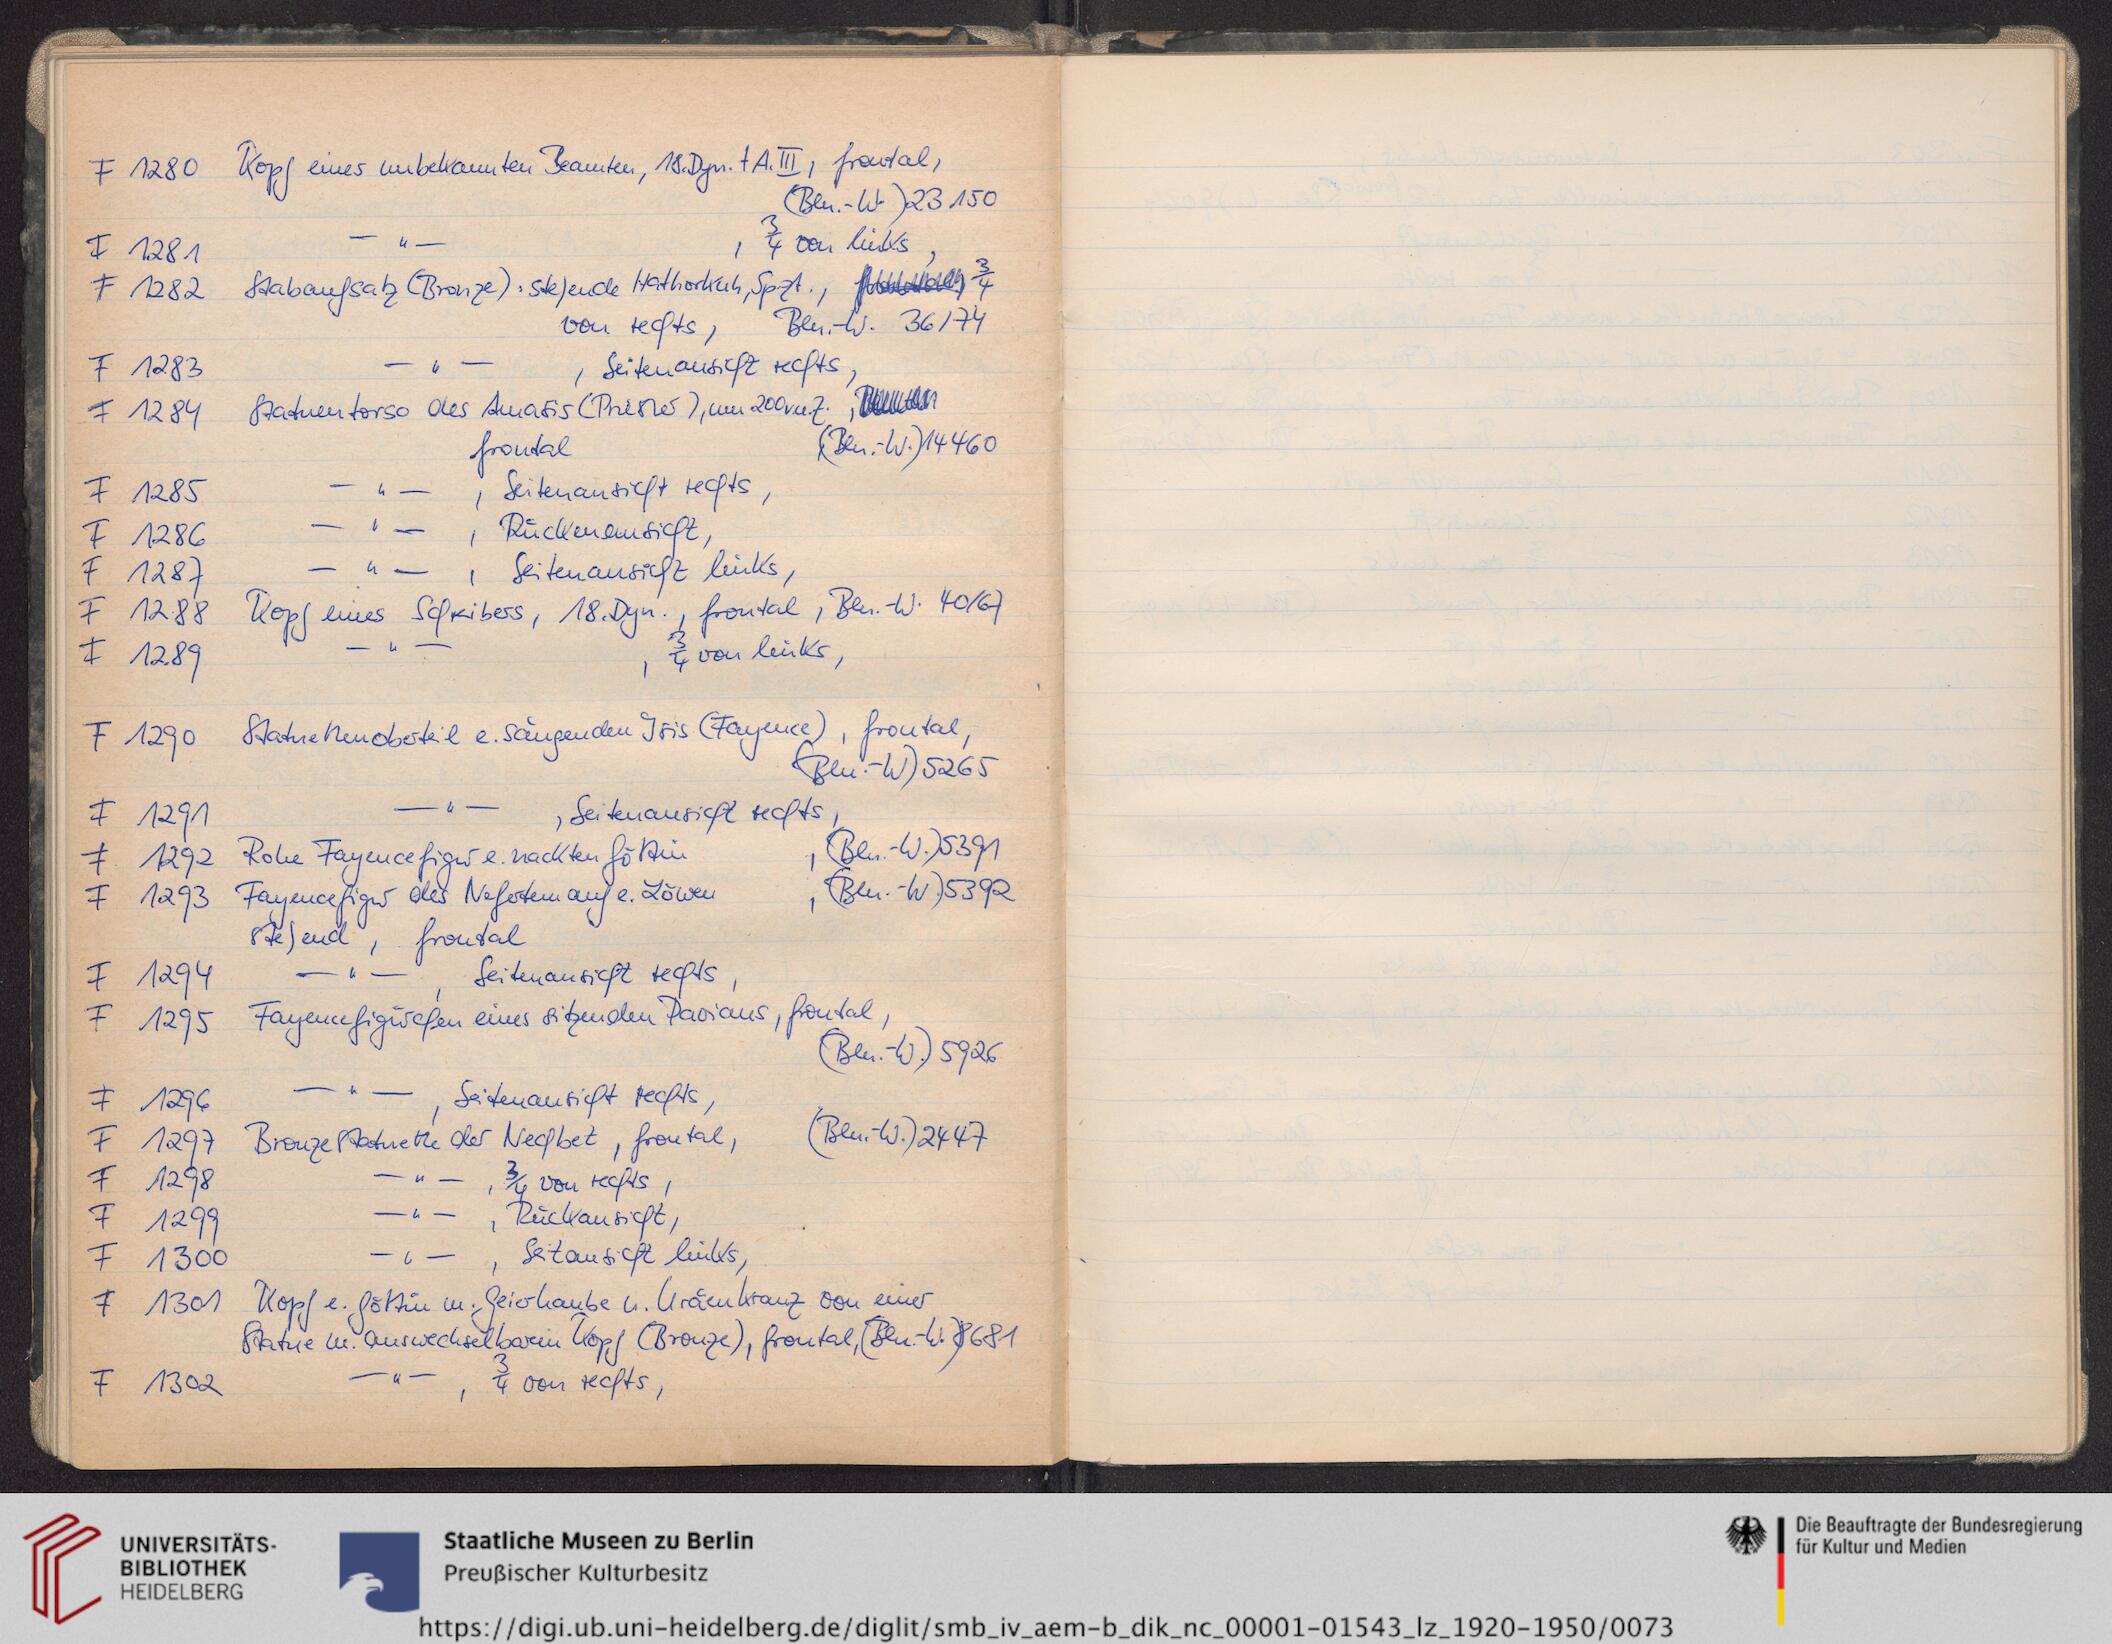 F 1280 Kopf eines unbekannten Beamten, 18.Dyn. † A.III, frontal,
(Bln.-W.) 23 150
F 1281 — " — , 3/4 von links,
F 1282 Stabaufsatz (Bronze): stehende Hathorkuh, Spzt., 3/4
von rechts, Bln.-W. 36/74
F 1283 — " — , Seitenansicht rechts,
F 1284 Statuentorso des Amasis (Priester), um 200 v.u.Z.,
frontal (Bln.-W.) 14460
F 1285 — " — , Seitenansicht rechts,
F 1286 — " — , Rückenansicht,
F 1287 — " — , Seitenansicht links,
F 1288 Kopf eines Schreibers, 18.Dyn., frontal, Bln.-W. 40/67
F 1289 — " — , 3/4 von links,
F 1290 Statuettenoberteil e. säugenden Isis (Fayence), frontal,
(Bln.-W) 5265
F 1291 — " — , Seitenansicht rechts,
F 1292 Rohe Fayencefigur e. nackten Göttin , (Bln.-W.) 5391
F 1293 Fayencefigur des Nefertem auf e. Löwen , (Bln.-W.) 5392
stehend, frontal
F 1294 — " — , Seitenansicht rechts,
F 1295 Fayencefigürchen eines sitzenden Pavians, frontal,
(Bln.-W.) 5926
F 1296 — " — , Seitenansicht rechts,
F 1297 Bronzestatuette der Nechbet, frontal, (Bln.-W.) 2447
F 1298 — " — , 3/4 von rechts,
F 1299 — " — , Rückansicht,
F 1300 — " — , Seitansicht links,
F 1301 Kopf e. Göttin m. Geierhaube u. Uräenkranz von einer
Statue m. auswechselbarem Kopf (Bronze), frontal, (Bln.-W.) 8681
F 1302 — " — , 3/4 von rechts,
UNIVERSITÄTS-
BIBLIOTHEK
HEIDELBERG
Staatliche Museen zu Berlin
Preußischer Kulturbesitz
Die Beauftragte der Bundesregierung
für Kultur und Medien
https://digi.ub.uni-heidelberg.de/diglit/smb_iv_aem-b_dik_nc_00001-01543_lz_1920-1950/0073